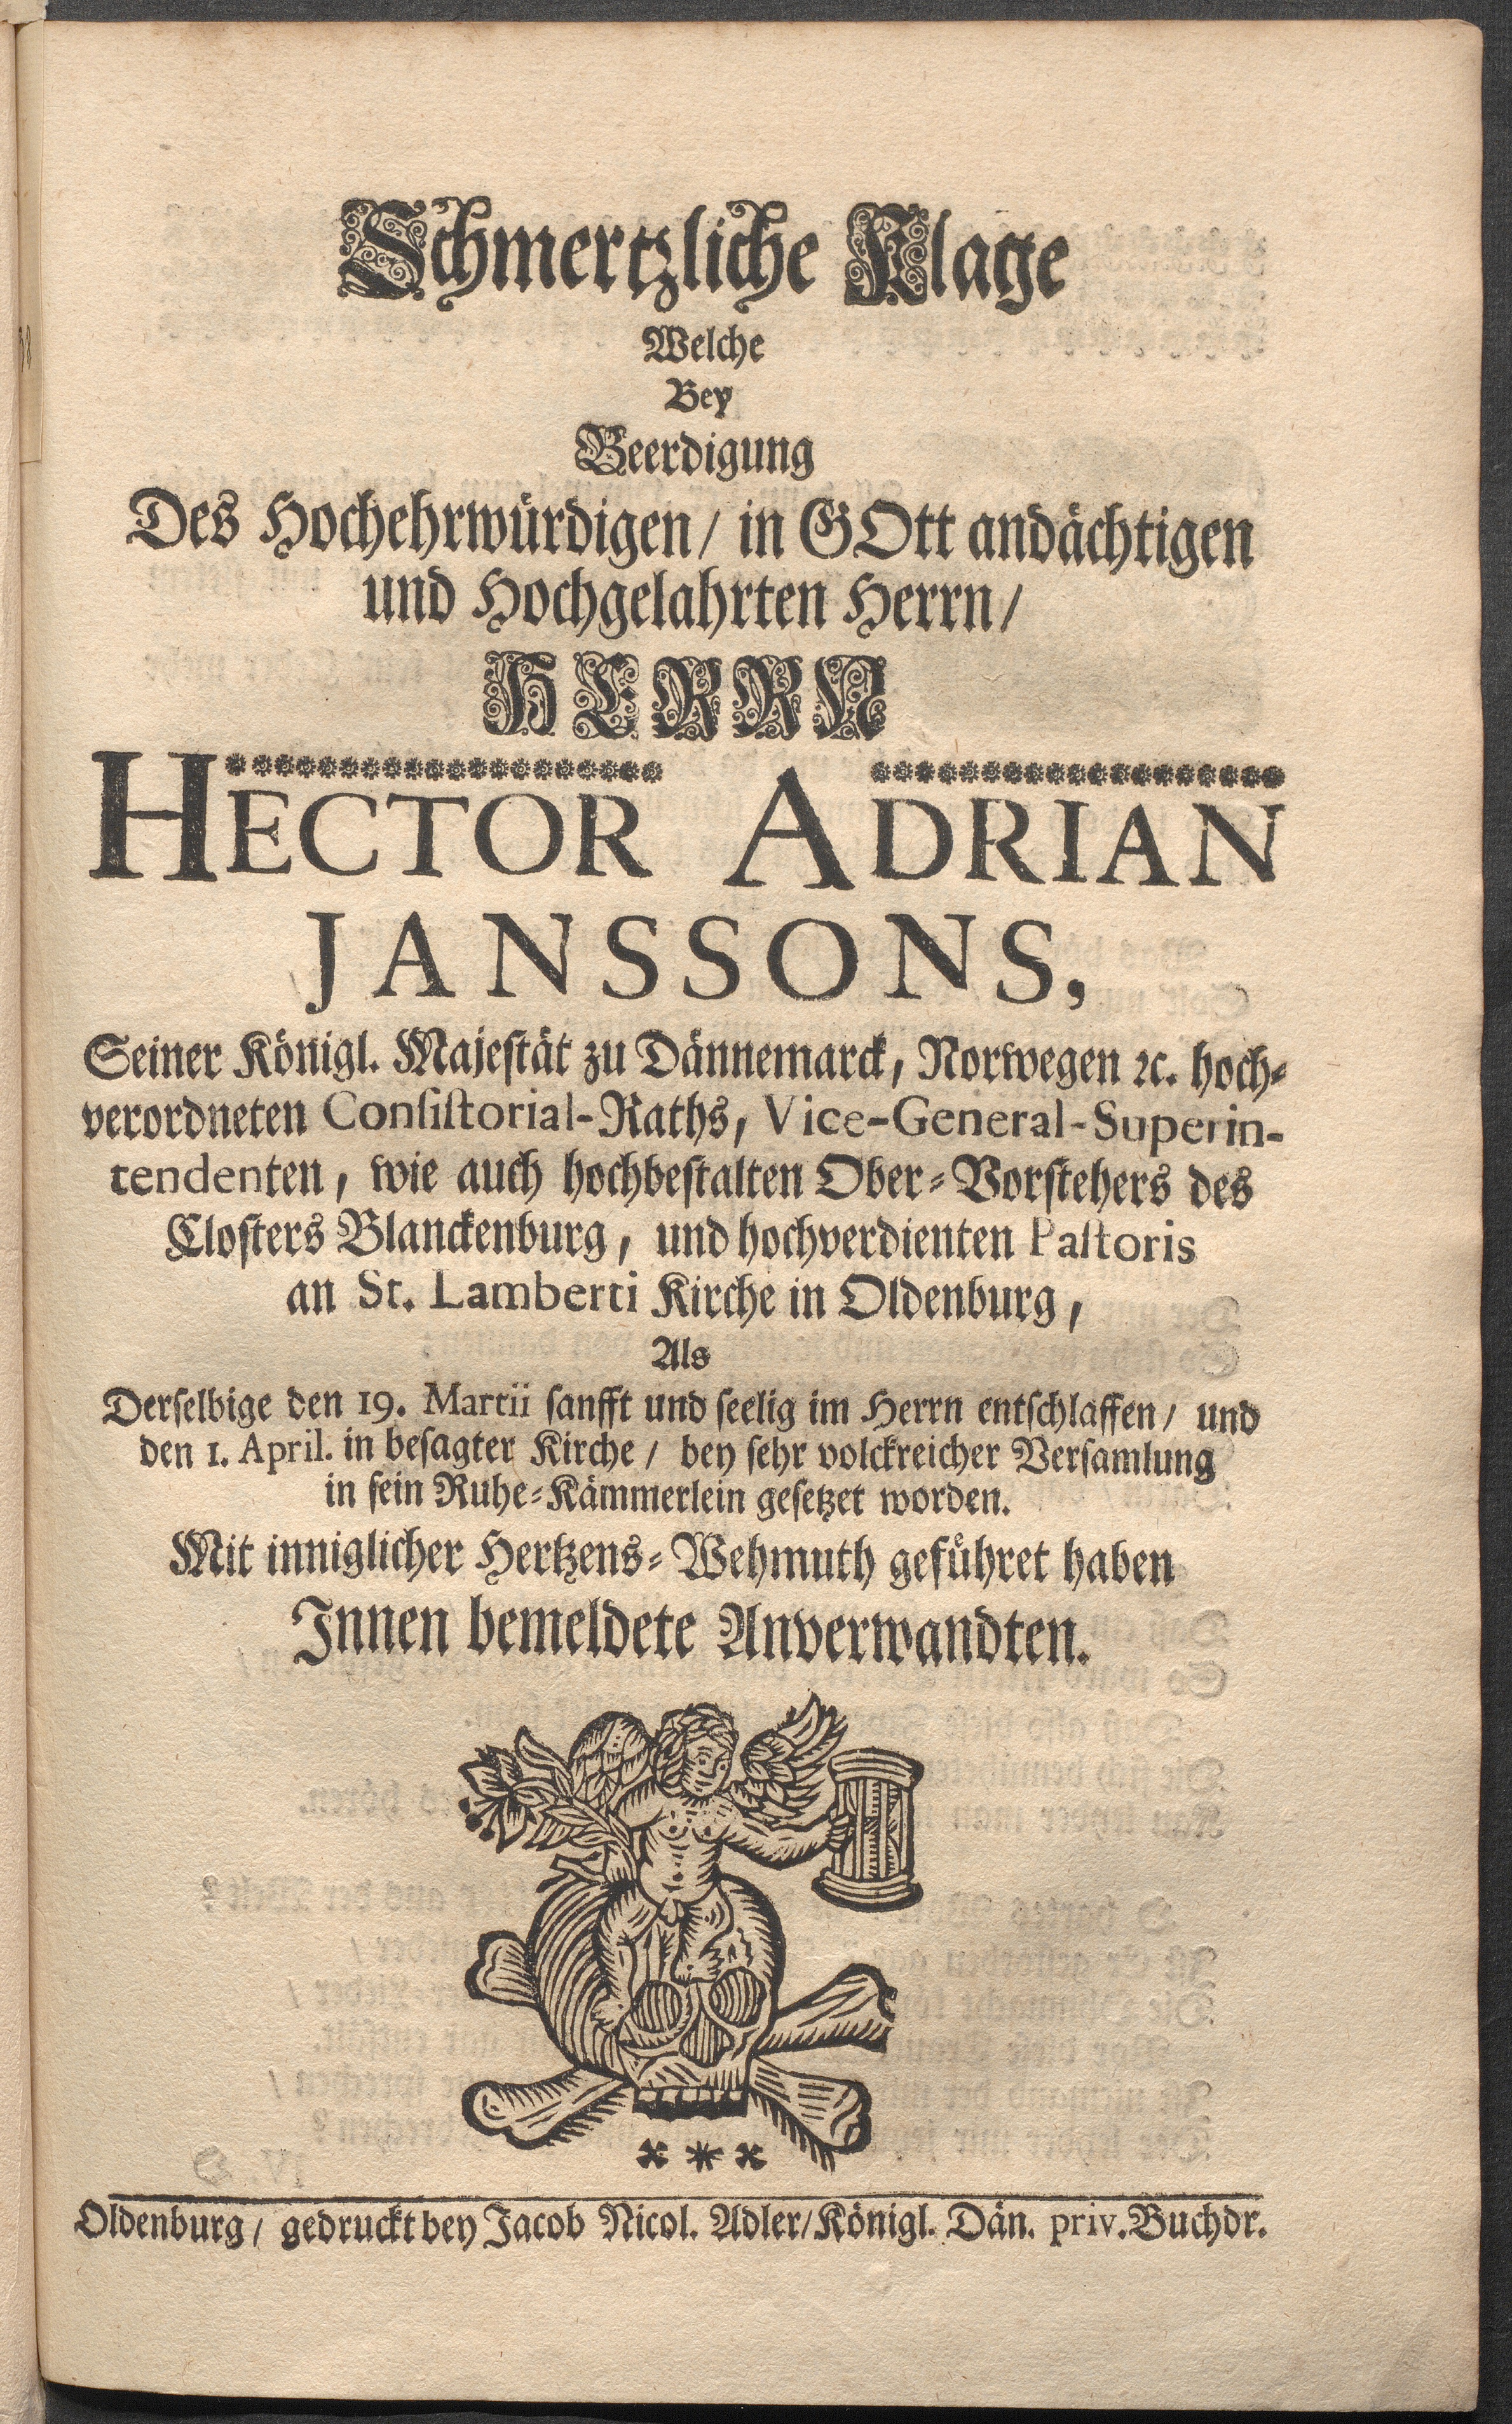 Schmertzliche Klage
Welche
Bey
Beerdigung
Des Hochehrwürdigen/ in GOtt andächtigen
und Hochgelahrten Herrn/
HERRN
HECTOR ADRIAN
JANSSONS,
Seiner Königl. Majestät zu Dännemarck, Norwegen ꝛc. hoch-
verordneten Consistorial-Raths, Vice-General-Superin-
tendenten, wie auch hochbestalten Ober-Vorstehers des
Closters Blanckenburg, und hochverdienten Pastoris
an St. Lamberti Kirche in Oldenburg,
Als
Derselbige den 19. Martii sanfft und seelig im Herrn entschlaffen/ und
den 1. April. in besagter Kirche/ bey sehr volckreicher Versamlung
in sein Ruhe-Kämmerlein gesetzet worden.
Mit inniglicher Hertzens-Wehmuth geführet haben
Innen bemeldete Anverwandten.
Oldenburg/ gedruckt bey Jacob Nicol. Adler/Königl. Dän. priv. Buchdr.